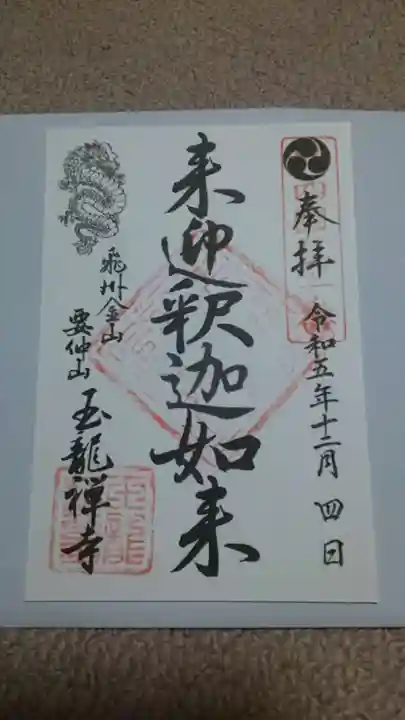 奉拝
令和五年十二月 四日
来迎釈迦如来
飛州金山
要仲山
玉龍禅寺